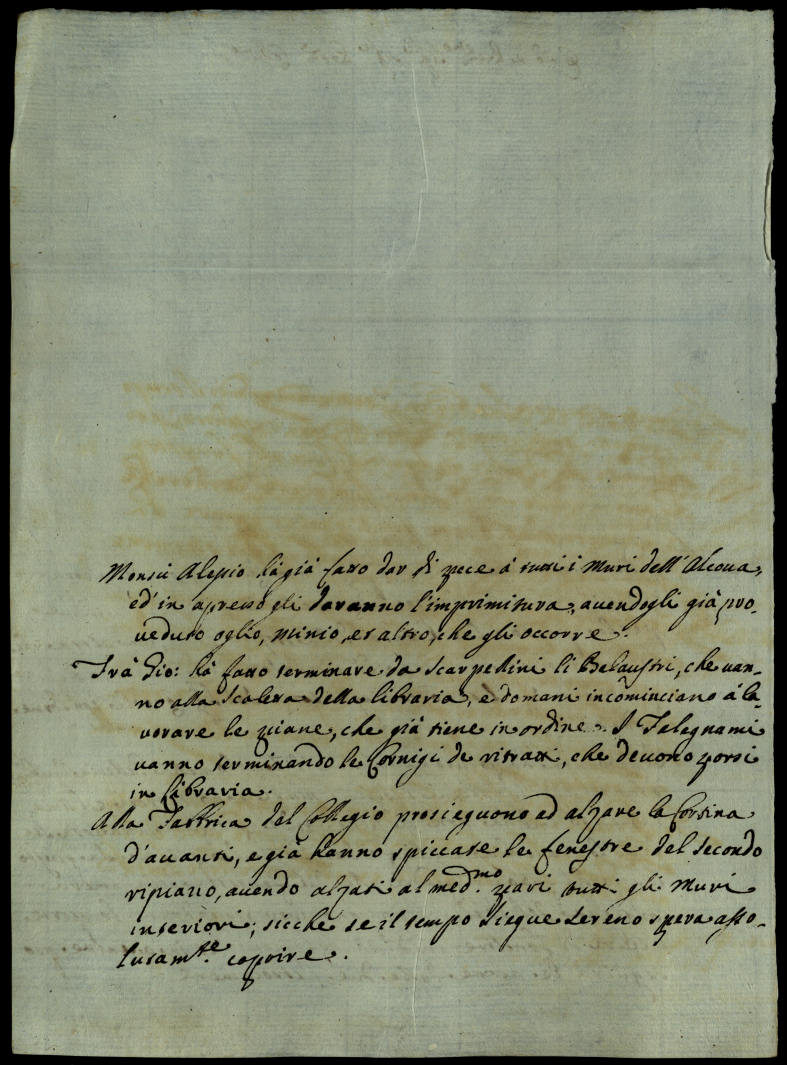 Monsù Alessio hà già fatto dar di pece à tutti i muri dell'Alcoua,
ed' in apresso gli daranno l'imprimitura, auendogli già pro-
ueduto oglio, minio, et altro, che gli occorre.
Frà Gio: hà fatto terminare da scarpellini li Balaustri, che uan-
no alla Scaletta della libraria, e domani incõminciano à la-
uorare le piane, che già tiene in ordine. I Falegnami
uanno terminando le Cornigi de ritratti, che deuono porsi
in Libraria.
Alla Fabbrica del Collegio prosieguono ad alzare la Cortina
d'auanti, e già hanno spiccate le fenestre del secondo
ripiano, auendo alzati al med.mo pari tutti gli muri
interiori; sicche se il tempo siegue sereno spera asso-
lutam.te coprire.